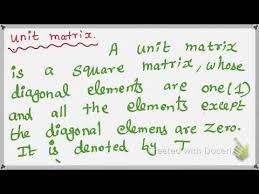 unit matrix.
A unit matrix
is a square matrix, whose
diagonal elements are one(1)
and all the elements except
the diagonal elemens are zero.
It is denoted by I